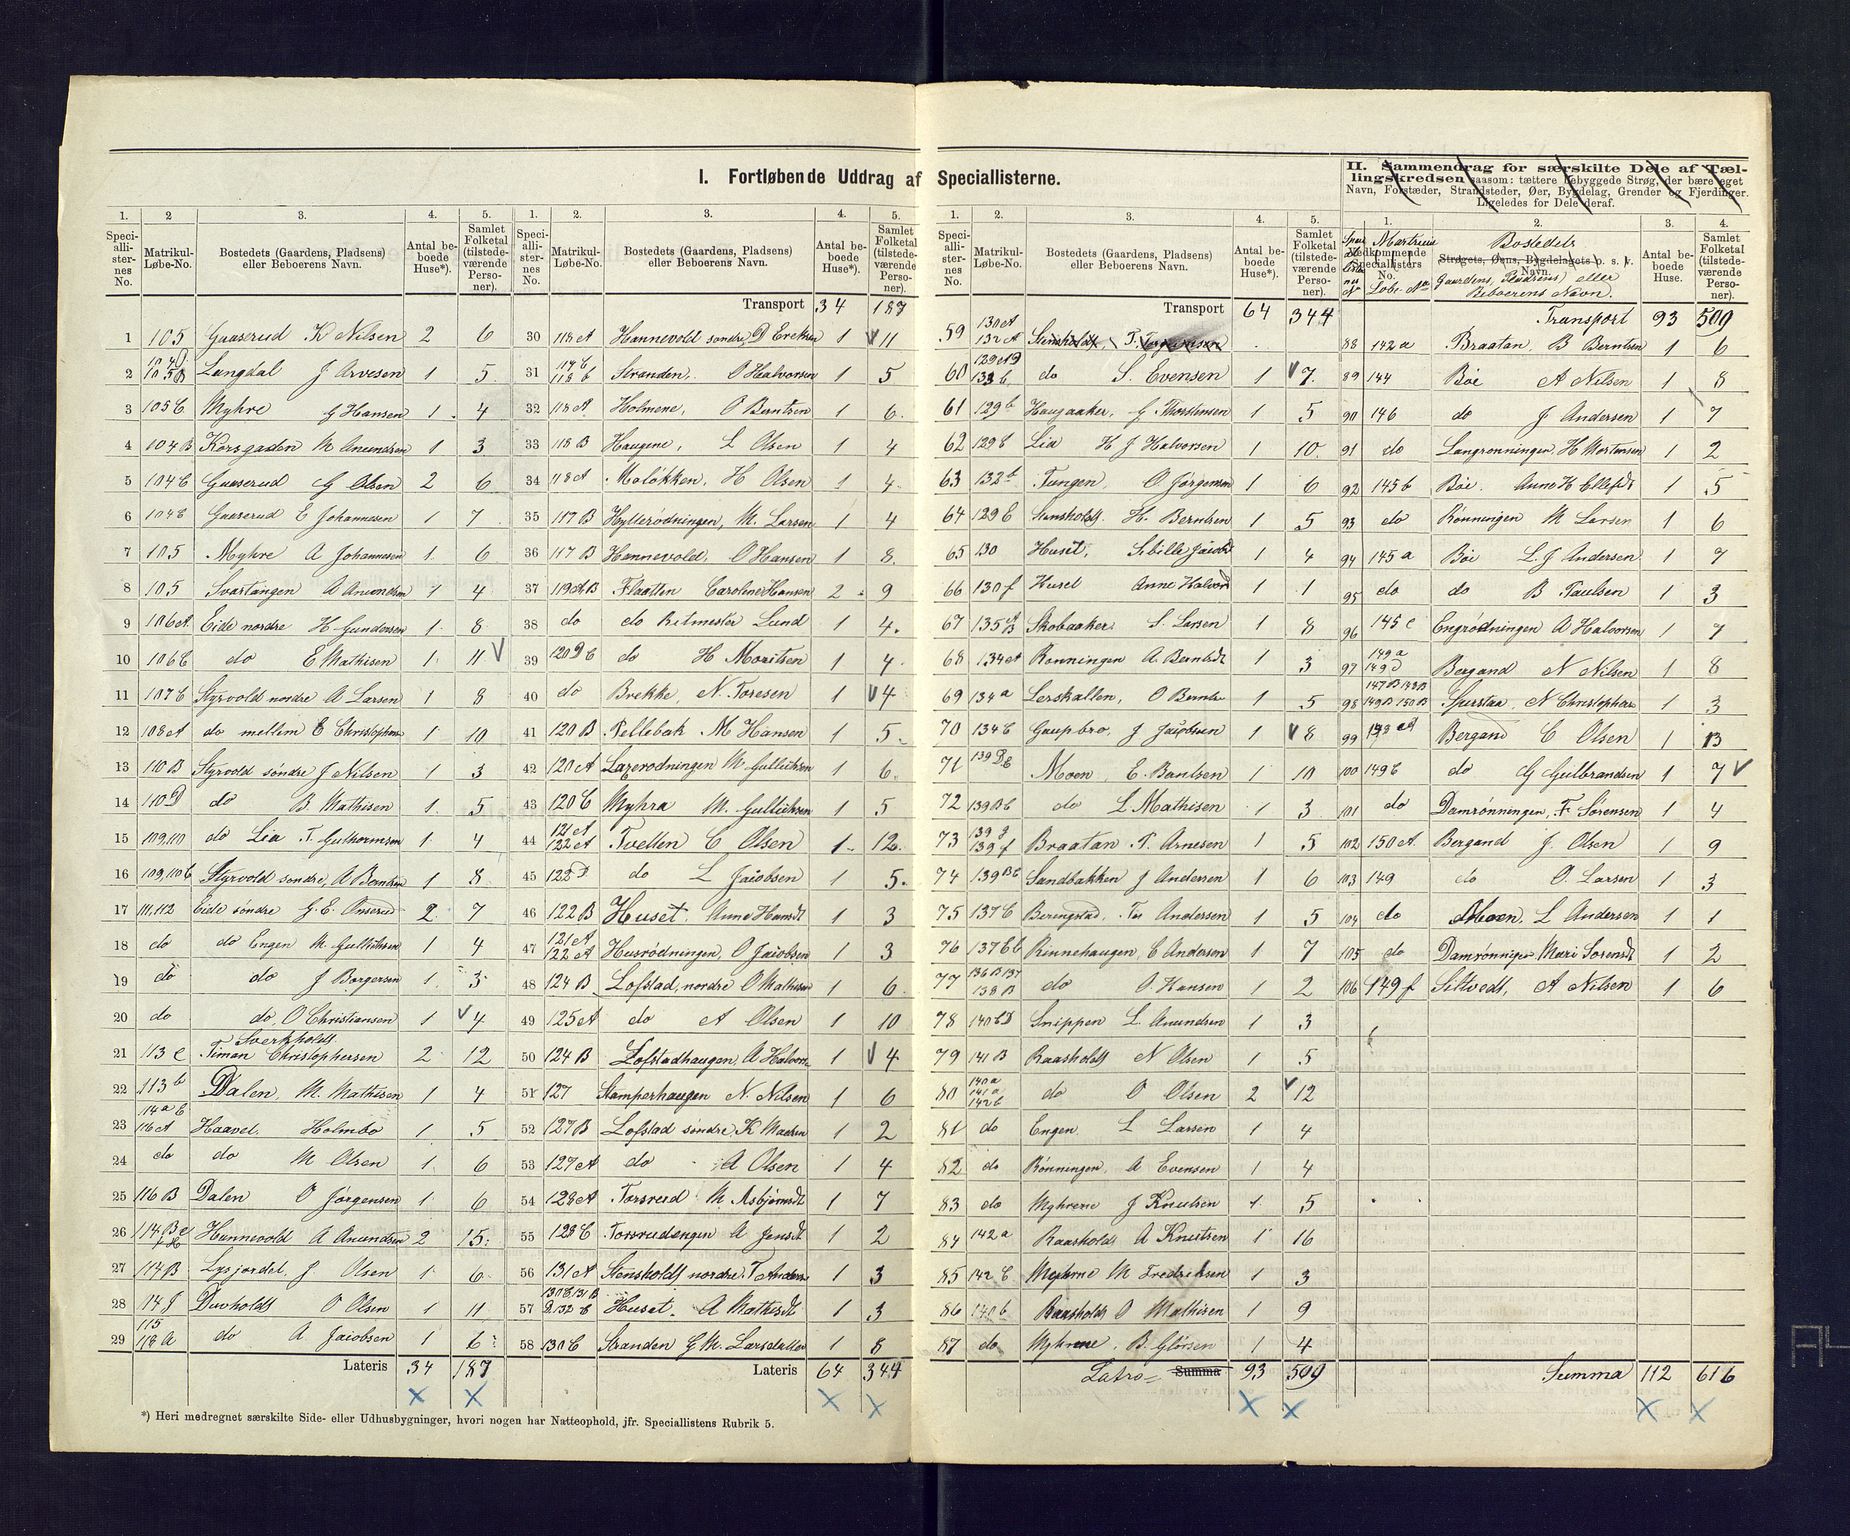 I. Fortløbende Uddrag af Speciallisterne.
II. Sammendrag for særskilte Dele af Tællingskredsen saasom: tættere bebyggede Strøg, der bære eget
Navn, Forstæder, Strandsteder, Øer, Bygdelag, Grender og Fjerdinger.
Ligeledes for Dele deraf.
1. 2 3. 4. 5.
Speciallisternes No. Matrikul-Løbe-No. Bostedets (Gaardens, Pladsens) eller Beboerens Navn. Antal beboede Huse*). Samlet Folketal (tilstedeværende Personer).
1 105 Gaaserud K Nilsen 2 6
2 Langdal J Arvesen 1 5
3 105C Myhre G Hansen 1 4
4 104B Korsgaden M Anundsen 1 3
5 104C Gaaserud G Olsen 2 6
6 104E Gaaserud E Johannesen 1 7
7 105 Myhre A Johannesen 1 6
8 105 Svartangen A Anundsen 1 4
9 106A Eide nordre H Gundersen 1 8
10 106C do E Mathisen 1 11
11 107C Styrvold nordre A Larsen 1 8
12 108A do mellem E Christophsen 1 10
13 110B Styrvold søndre J Nilsen 1 3
14 110D do B Mathisen 1 5
15 109,110 do Lia T. Guthormsen 1 4
16 109,110b Styrvold søndre, A Berntsen 1 8
17 111,112 Eide søndre G. E. Onserud 2 7
18 do do Engen M. Gulliksen 1 4
19 do do J Borgersen 1 3
20 do do, O Christiansen 1 4
21 113c Timan Christophersen 2 12
22 113b Dalen M. Mathisen 1 4
23 114a C 116A Haavel Holmbo 1 5
24 do do M Olsen 1 6
25 116B Dalen O Jørgensen 1 6
26 Hannevold A Anundsen 2 15
27 114B Lysjordet J Olsen 1 6
28 114J Duvholdt O Olsen 1 11
29 115 118A do A Jacobsen 1 6
Lateris 34 187
1. 2. 3. 4. 5.
Speciallisternes No. Matrikul-Løbe-No. Bostedets (Gaardens, Pladsens) eller Beboerens Navn. Antal beboede Huse*). Samlet Folketal (tilstedeværende Personer).
Transport 34 187
30 118A Hannevold søndre, D Ereksen 1 11
31 118b Stranden. O Halvorsen 1 5
32 118A Holmene, O Berntsen 1 6
33 118B Haugene, L Olsen 1 4
34 118A Moløkken, H Olsen 1 4
35 117B Hytterødningen, M. Larsen 1 4
36 117B Hannevold, O Hansen 1 8
37 Flaatten Caroline Hansen 2 9
38 do do Ritmester Lund 1 4
39 120D C do H Moritsen 1 4
40 do Brekke N. Toresen 1 4
41 120B Pellebak M Hansen 1 5
42 120A Lagerodningen M Gulliksen 1 6
43 120C Myhra M. Gulliksen 1 5
44 121A 122A Tvetten C Olsen 1 12
45 122D do L Jacobsen 1 5
46 122B Huset. Anne Hansdt 1 3
47 121A 122A Husrodningen, O Jacobsen 1 3
48 124B Lofstad, nordre O Mathisen 1 6
49 125A do A Olsen 1 10
50 124B Lofstadhaugen, A Halvors 1 4
51 127 Stamperhaugen N. Nilsen 1 6
52 127B Lofstad søndre, K Madsen 1 2
53 127A do A Olsen 1 4
54 128A Torsrud M. Asbjørnsdt 1 7
55 128C Torsrudengen A Jensdt 1 2
56 131A Stensholdt nordre, T Anders 1 3
57 Huset. A Mathisdt 1 3
58 130C Stranden G M. Larsdatter 1 8
Lateris 64 344
*) Heri medregnet særskilte Side- eller Udhusbygninger, hvori nogen har Natteophold, jfr. Speciallistens Rubrik 5.
1. 2. 3. 4. 5.
Speciallisternes No. Matrikul-Løbe-No. Bostedets (Gaardens, Pladsens) eller Beboerens Navn. Antal beboede Huse*). Samlet Folketal (tilstedeværende Personer).
Transport 64 344
59 130A 132A Stensholdt, T. Torgersen
60 do S. Evensen 1 7
61 129b Haugaaker, G Thorstensen 1 5
62 129C Lia H J Halvorsen 1 10
63 132b Tangen, O Jørgensen 1 6
64 129C Stensholdt H. Berntsen 1 5
65 130 Huset, Sibille Jacobsd 1 4
66 130f Huset Anne Halvors 1 1
67 135A B Skobaaker S. Larsen 1 8
68 134A Ronningen A. Berntsdt 1 3
69 134a Lerskallen, O Berntsen 1 5
70 134C Gaupbro, J Jacobsen 1 8
71 139D E Moen, E. Paulsen 1 10
72 139B C do L Mathisen 1 3
73 139g 139f Braatan P. Arnesen 1 5
74 139B C Sandbakken J Andersen 1 6
75 137C Beringstad, Tor Andersen 1 5
76 137C b Rinnehaugen, C Andersen 1 7
77 136B 137 138B do O Hansen 1 2
78 140C D Snippen L. Anundsen 1 3
79 141B Raasholdt N Olsen 1 5
80 140a 141a 142b do O Olsen 2 12
81 do Engen. L Larsen 1 4
82 do Rønningen, A Evensen 1 4
83 do Myhrene J Knutsen 1 5
84 142a Raasholdt A Knutsen 1 16
85 142C Myhrene M Fredriksen 1 3
86 140b Raasholdt O Mathisen 1 9
87 do Myhrene. B. Glørsen 1 4
Latro Summa 93 509
1. 2. 3. 4.
Vedkommende Speciallisters No. Strøgets, Øens, Bygdelagets o. s. v. Navn. Antal beboede Huse. Samlet Folketal (tilstedeværende Personer).
Bostedets
Gaardens, Pladsens) eller
Beboerens Navn.
Transport 93 509
88 142a Braatan, B Berntsen 1 6
89 144 Bøe A Nilsen 1 8
90 146 do J Andersen 1 7
91 do Langrønningen, H Mortensen 1 2
92 145b Bøe. Anne H Ellefsdt 1 5
93 do Rønningen M Larsen 1 6
94 145a Bøe L. J Andersen 1 7
95 do do B Paulsen 1 3
96 145c Engrødningen A Halvorsen 1 7
97 149a 149D Bergand N Nilsen 1 8
98 147B 148B 149B 150B N Christophers 1 3
99 Bergand C Olsen 1 13
100 149C do G Gulbrandsen 1 7
101 do Damrønningen, F. Sørensen 1 4
102 150A Bergand J. Olsen 1 9
103 149 do O. Larsen 1 3
104 do Moen, L Andersen 1 1
105 do Damrønningen Mari Sorensdt 1 2
106 149f Siltvedt, A Nilsen 1 6
Summa 112 616